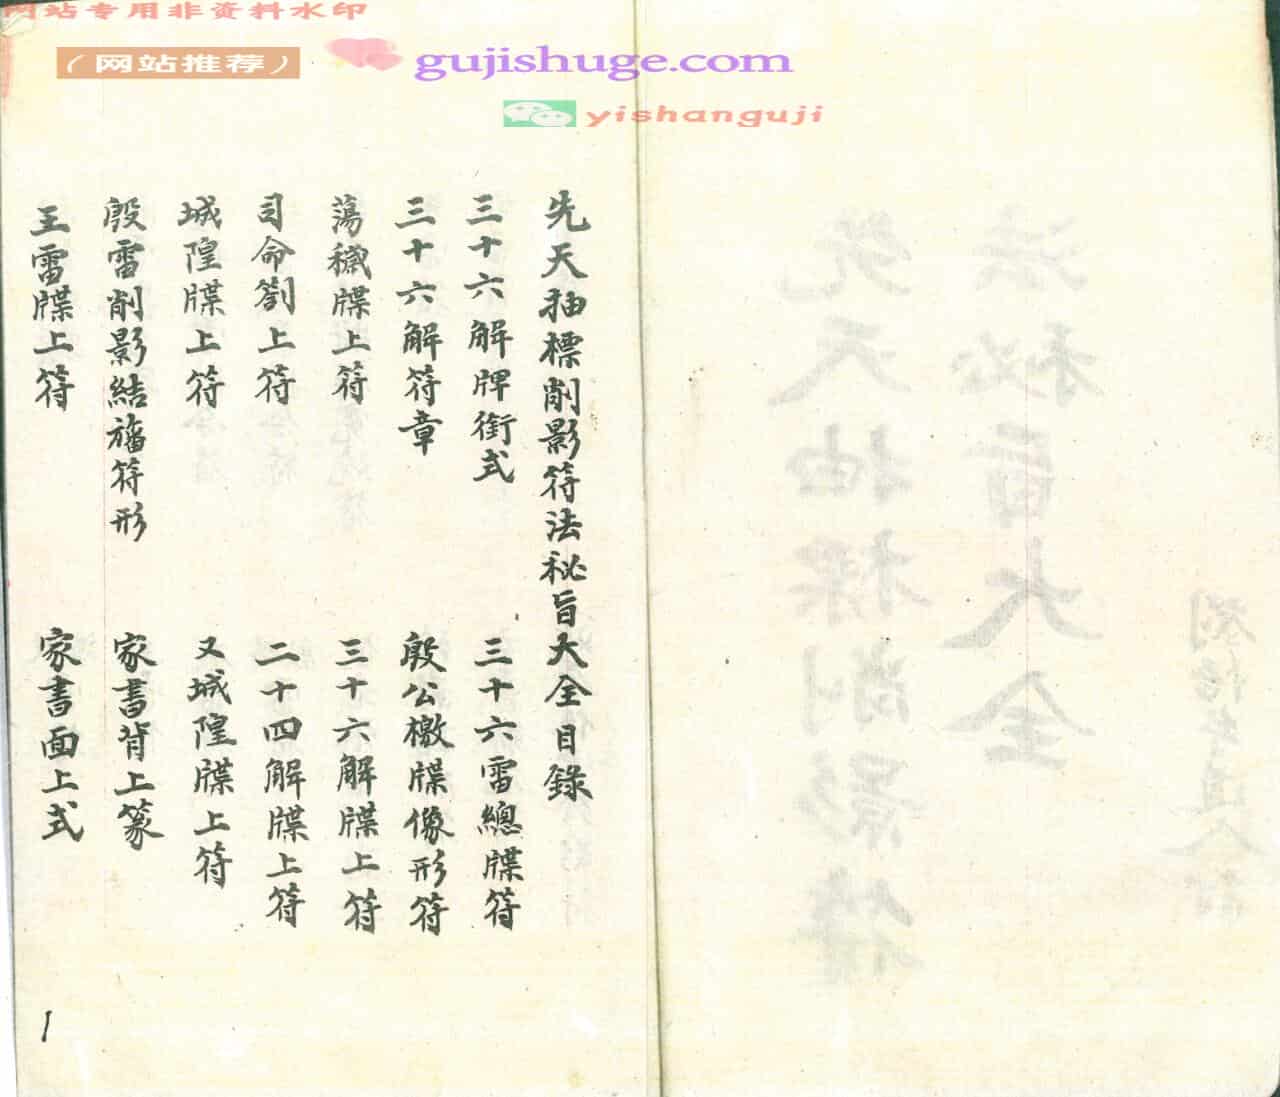 网站专用非资料水印
（网站推荐）
gujishuge.com
yishanguji
先天抽標削影符法秘旨大全目錄
三十六解牌銜式
三十六雷總牒符
三十六解符章
殷公檄牒像形符
蕩穢牒上符
三十六解牒上符
司命劄上符
二十四解牒上符
城隍牒上符
又城隍牒上符
殷雷削影結旛符形
家書背上篆
王雷牒上符
家書面上式
1
先天抽標削影符
法秘旨大全